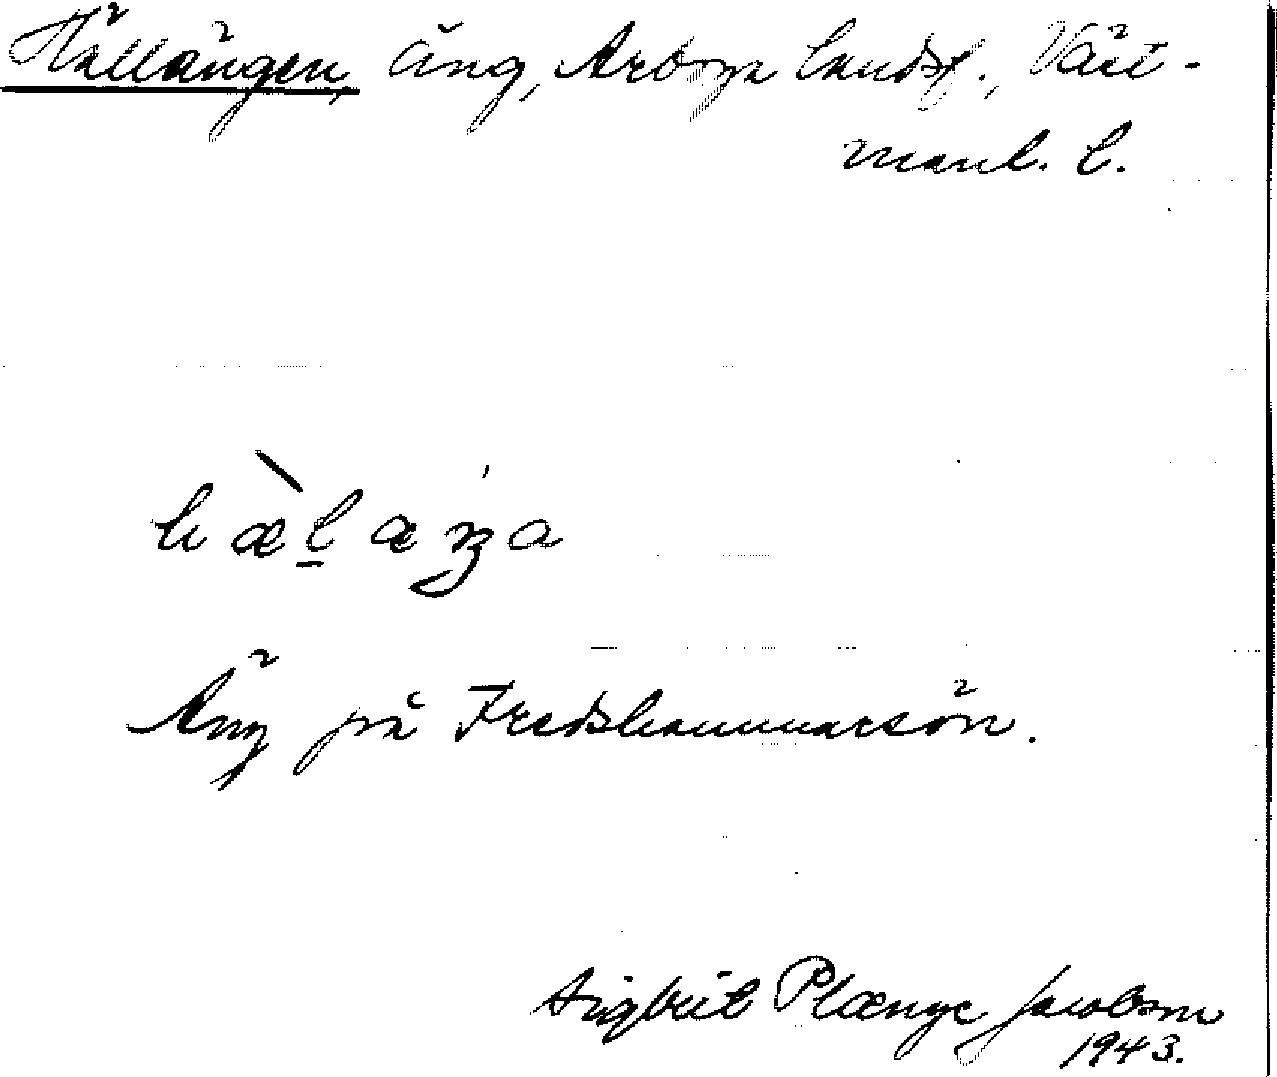 Hällängen, äng, Arboga landsf., Väst-
manl. l.
hæ̀l̠æŋa
Äng på Fredshammarsön.
Sigbrit Plænge Jacobson
1943.